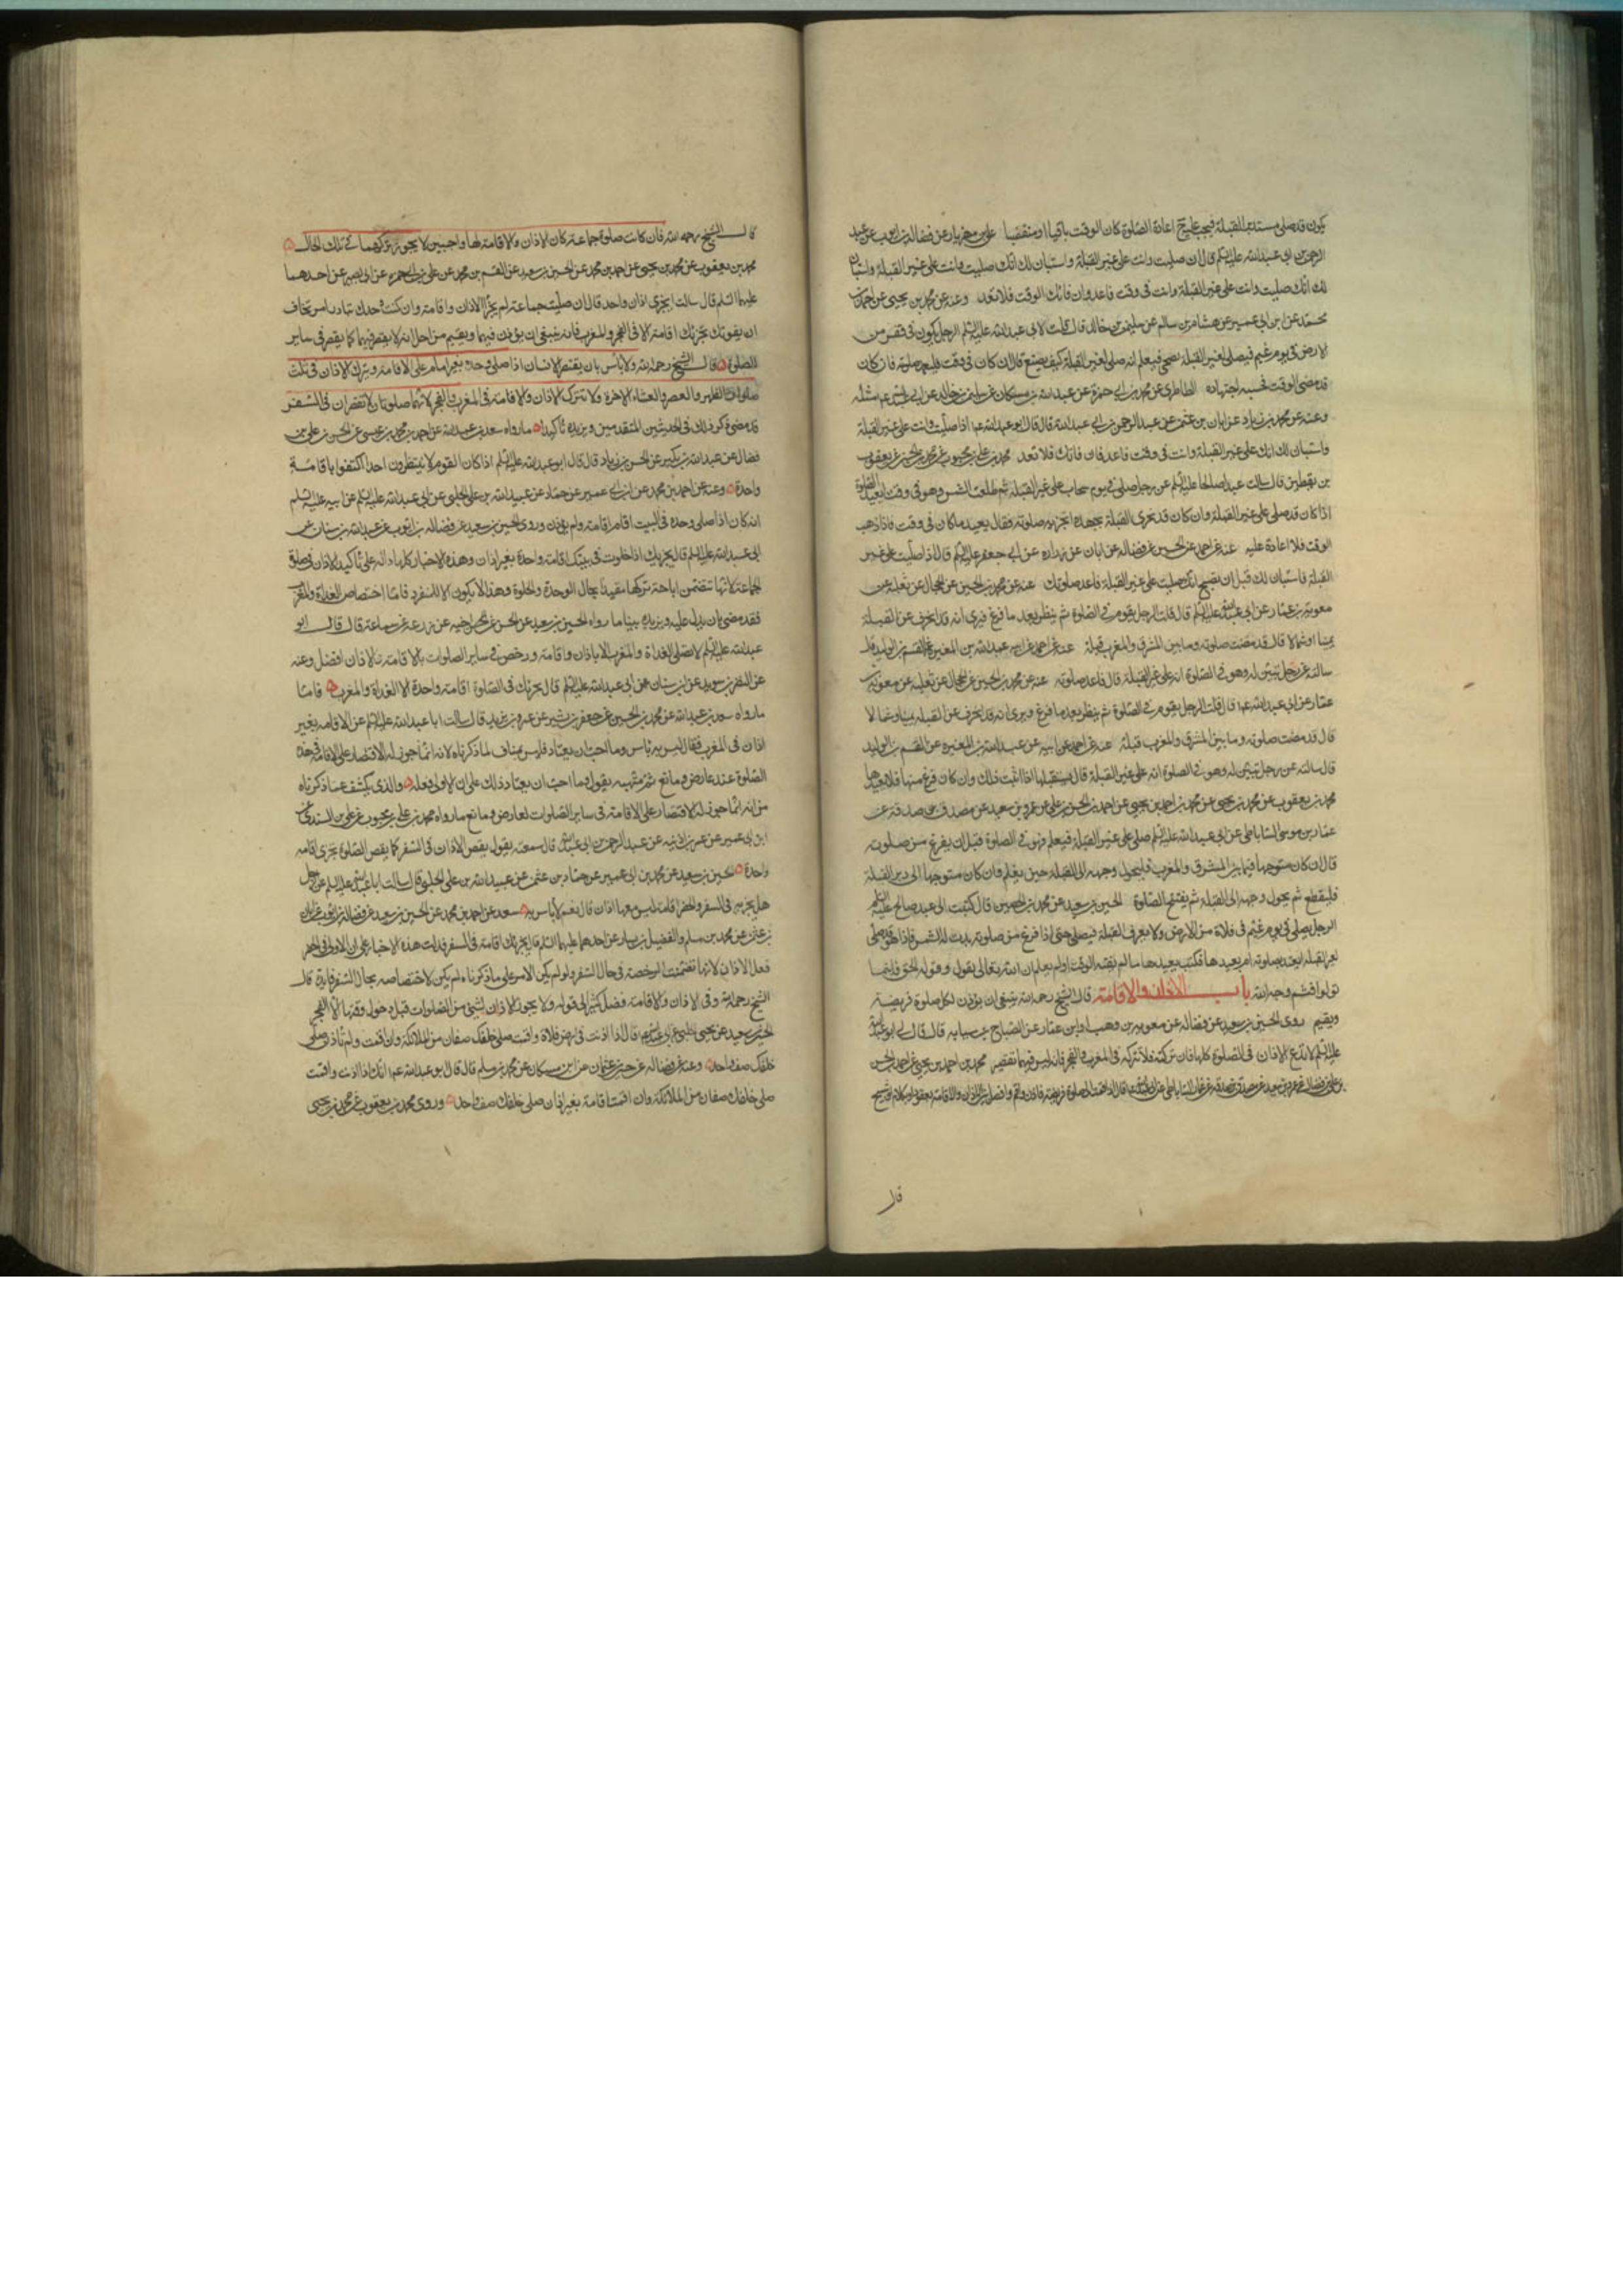 يكون قد صلى مستدبر القبلة فيجب عليه ح اعادة الصلوة كان الوقت باقيا او منقضيا علي بن مهزيار عن فضالة بن ايوب عن عبد
الرحمن بن ابي عبد الله عليه السلم قال ان صليت وانت على غير القبلة واستبان لك انك صليت وانت على غير القبلة واستبان
لك انك صليت وانت على غير القبلة وانت في وقت فاعد وان فاتك الوقت فلا تعد وعنه عن محمد بن يحيى عن احمد بن
محمد عن ابن ابي عمير عن هشام بن سالم عن سليمن بن خالد قال قلت لابي عبد الله عليه السلم الرجل يكون في قفر من
الارض في يوم غيم فيصلي لغير القبلة ثم يصحى فيعلم انه صلى لغير القبلة كيف يصنع قال ان كان في وقت فليعد صلوته فان كان
قد مضى الوقت فحسبه اجتهاده الطاطري عن محمد بن ابي حمزة عن عبد الله بن مسكان عن سليمن بن خالد عن ابي عبد الله عم مثله
وعنه عن محمد بن زياد عن ابان بن عثمن عن عبد الرحمن بن ابي عبد الله قال قال ابو عبد الله عم اذا صليت وانت على غير القبلة
واستبان لك انك على غير القبلة وانت في وقت فاعد فان فاتك فلا تعد محمد بن علي بن محبوب عن محمد بن الحسين عن يعقوب
بن يقطين قال سالت عبدا صالحا عليه السلم عن رجل صلى في يوم سحاب على غير القبلة ثم طلعت الشمس وهو في وقت ايعيد الصلوة
اذا كان قد صلى على غير القبلة وان كان قد تحرى القبلة بجهده اتجزيه صلوته فقال يعيد ما كان في وقت فاذا ذهب
الوقت فلا اعادة عليه عنه عن احمد عن الحسين عن فضالة عن ابان عن زرارة عن ابي جعفر عليه السلم قال اذا صليت على غير
القبلة فاستبان لك قبل ان تصبح انك صليت على غير القبلة فاعد صلوتك عنه عن محمد بن الحسين عن الحجال عن ثعلبة عن
معوية بن عمار عن ابي عبد الله عليه السلم قال قلت الرجل يقوم في الصلوة ثم ينظر بعد ما فرغ فيرى انه قد انحرف عن القبلة
يمينا او شمالا قال قد مضت صلوته وما بين المشرق والمغرب قبلة عنه عن احمد عن ابيه عبد الله بن المغيرة عن القسم بن الوليد قال
سالته عن رجل تبين له وهو في الصلوة انه على غير القبلة قال فاعد صلوته عنه عن محمد بن الحسين عن الحجال عن ثعلبة عن معوية بن
عمار عن ابي عبد الله عم قال قلت الرجل يقوم في الصلوة ثم ينظر بعد ما فرغ ويرى انه قد انحرف عن القبلة يمينا وشمالا
قال قد مضت صلوته وما بين المشرق والمغرب قبلة عنه عن احمد عن ابيه عن عبد الله بن المغيرة عن القسم بن الوليد
قال سالته عن رجل تبين له وهو في الصلوة انه على غير القبلة قال يستقبلها اذا اثبت ذلك وان كان فرغ منها فلا يعيدها
محمد بن يعقوب عن محمد بن يحيى عن محمد بن احمد بن يحيى عن احمد بن الحسن بن علي عن عمرو بن سعيد عن مصدق بن صدقة عن
عمار بن موسى الساباطي عن ابي عبد الله عليه السلم صلى على غير القبلة فيعلم وهو في الصلوة قبل ان يفرغ من صلوته
قال ان كان متوجها فيما بين المشرق والمغرب فليحول وجهه الى القبلة حين يعلم وان كان متوجها الى دبر القبلة
فليقطع ثم يحول وجهه الى القبلة ثم يفتتح الصلوة الحسين بن سعيد عن محمد بن الحصين قال كتبت الى عبد صالح عليه السلم
الرجل يصلي في يوم غيم في فلاة من الارض ولا يعرف القبلة فيصلي حتى اذا فرغ من صلوته بدت له الشمس فاذا هو قد صلى
لغير القبلة ايعتد بصلوته ام يعيدها فكتب يعيدها ما لم يفته الوقت اولم يعلم ان الله تعالى يقول وقوله الحق فاينما
تولوا فثم وجه الله باب الاذان والاقامة قال الشيخ رحمه الله ينبغي ان يؤذن لكل صلوة فريضة
ويقيم روى الحسين بن سعيد عن فضالة عن معوية بن وهب او ابن عمار عن الصباح بن سيابة قال قال لي ابو عبد الله
عليه السلم لا تدع الاذان في الصلوة كلها فان تركته فلا تتركه في المغرب والفجر فانه ليس فيهما تقصير محمد بن احمد بن يحيى عن احمد بن الحسن
بن علي بن فضال عن عمرو بن سعيد عن مصدق بن صدقة عن عمار الساباطي عن ابي عبد الله عم قال اذا قمت الى صلوة فريضة فاذن واقم وافصل بين الاذان والاقامة بقعود او بكلام او تسبيح
قال
قال الشيخ رحمه الله فان كانت صلوة جماعة كان الاذان والاقامة لها واجبين لا يجوز تركهما في تلك الحال
محمد بن يعقوب عن محمد بن يحيى عن احمد بن محمد عن الحسين بن سعيد عن القسم بن محمد عن علي بن ابي حمزة عن ابي بصير عن احدهما
عليهما السلم قال سالت ايجزي اذان واحد قال ان صليت جماعة لم يجز الا اذان واقامة وان كنت وحدك تبادر امرا تخاف
ان يفوتك تجزئك اقامة الا في الفجر والمغرب فانه ينبغي ان تؤذن فيهما وتقيم من اجل انه لا يقصر فيهما كما يقصر في ساير
الصلوات قال الشيخ رحمه الله ولا بأس بان يقتصر الانسان اذا صلى وحده بغير امام على الاقامة ويترك الاذان في ثلث
صلوات الظهر والعصر والعشاء الاخرة ولا تترك الاذان والاقامة في المغرب والفجر لانهما صلوتان لا تقصران في السفر
قد مضى ذكر ذلك في الحديثين المتقدمين ويزيده تأكيدا ما رواه سعد بن عبد الله عن احمد بن محمد بن عيسى عن الحسن بن علي بن
فضال عن عبد الله بن بكير عن الحسن بن زياد قال قال ابو عبد الله عليه السلم اذا كان القوم لا ينتظرون احدا اكتفوا باقامة
واحدة وعنه عن احمد بن محمد عن ابن ابي عمير عن حماد عن عبيد الله بن علي الحلبي عن ابي عبد الله عليه السلم عن ابيه عليه السلم
انه كان اذا صلى وحده في البيت اقام اقامة ولم يؤذن وروى الحسين بن سعيد عن فضالة بن ايوب عن عبد الله بن سنان عن
ابي عبد الله عليه السلم قال يجزيك اذا خلوت في بيتك اقامة واحدة بغير اذان وهذه الاخبار كلها دالة على تأكيد الاذان في صلوة
الجماعة لانها تتضمن اباحة تركها مقيدا بحال الوحدة والخلوة وهذا لا يكون الا للمنفرد فاما اختصاص الغداة والمغرب
فقد مضى ما يدل عليه ويزيده بيانا ما رواه الحسين بن سعيد عن الحسن عن اخيه عن زرعة عن سماعة قال قال ابو
عبد الله عليه السلم لا تصلى الغداة والمغرب الا باذان واقامة ورخص في ساير الصلوات بالاقامة والاذان افضل وعنه
عن النضر بن سويد عن ابن سنان عن ابي عبد الله عليه السلم قال يجزيك في الصلوة اقامة واحدة الا الغداة والمغرب فاما
ما رواه سعد بن عبد الله عن محمد بن الحسين عن جعفر بن بشير عن عمر بن يزيد قال سالت ابا عبد الله عليه السلم عن الاقامة بغير
اذان في المغرب فقال ليس به بأس وما احب ان يعتاد فليس بمناف لما ذكرناه لانه انما جوز له الاقتصار على الاقامة في هذه
الصلوة عند عارض ومانع ثم نبهه بقوله وما احب ان يعتاد ذلك على ان الاولى فعله والذي يكشف عما ذكرناه
من انه انما جوز له الاقتصار على الاقامة في ساير الصلوات لعارض ومانع ما رواه محمد بن علي بن محبوب عن علي بن السندي عن
ابن ابي عمير عن عمر بن اذينة عن عبد الرحمن بن ابي عبد الله قال سمعته يقول يقصر الاذان في السفر كما يقصر الصلوة تجزي اقامة
واحدة الحسين بن سعيد عن محمد بن ابي عمير عن حماد بن عثمن عن عبيد الله بن علي الحلبي قال سالت ابا عبد الله عليه السلم عن رجل
هل يجزيه في السفر والحضر اقامة ليس معها اذان قال نعم لا بأس به سعد عن احمد بن محمد عن الحسين بن سعيد عن فضالة بن ايوب عن ابان
بن عثمن عن محمد بن مسلم والفضيل بن يسار عن احدهما عليهما السلم قال يجزيك اقامة في السفر فدلت هذه الاخبار على ان الاولى في الحضر
فعل الاذان لانها تضمنت الرخصة في حال السفر ولو لم يكن الامر على ما ذكرناه لم يكن لاختصاصه بحال السفر فايدة قال
الشيخ رحمه الله وفي الاذان والاقامة فضل كثير الى قوله ولا يجوز الاذان لشيئ من الصلوات قبل دخول وقتها الا الفجر
الحسين بن سعيد عن يحيى الحلبي عن ابي عبد الله عم قال اذا اذنت في ارض فلاة واقمت صلى خلفك صفان من الملائكة وان اقمت ولم تأذن صلى
خلفك صف واحد وعنه عن فضالة عن حسين بن عثمان عن ابن مسكان عن محمد بن مسلم قال قال ابو عبد الله عم انك اذا اذنت واقمت
صلى خلفك صفان من الملائكة وان اقمت اقامة بغير اذان صلى خلفك صف واحد وروى محمد بن يعقوب عن محمد بن يحيى